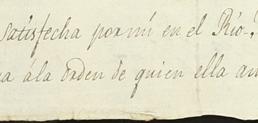 satisfecha por mi en el Rio-
a á la orden de quien ella